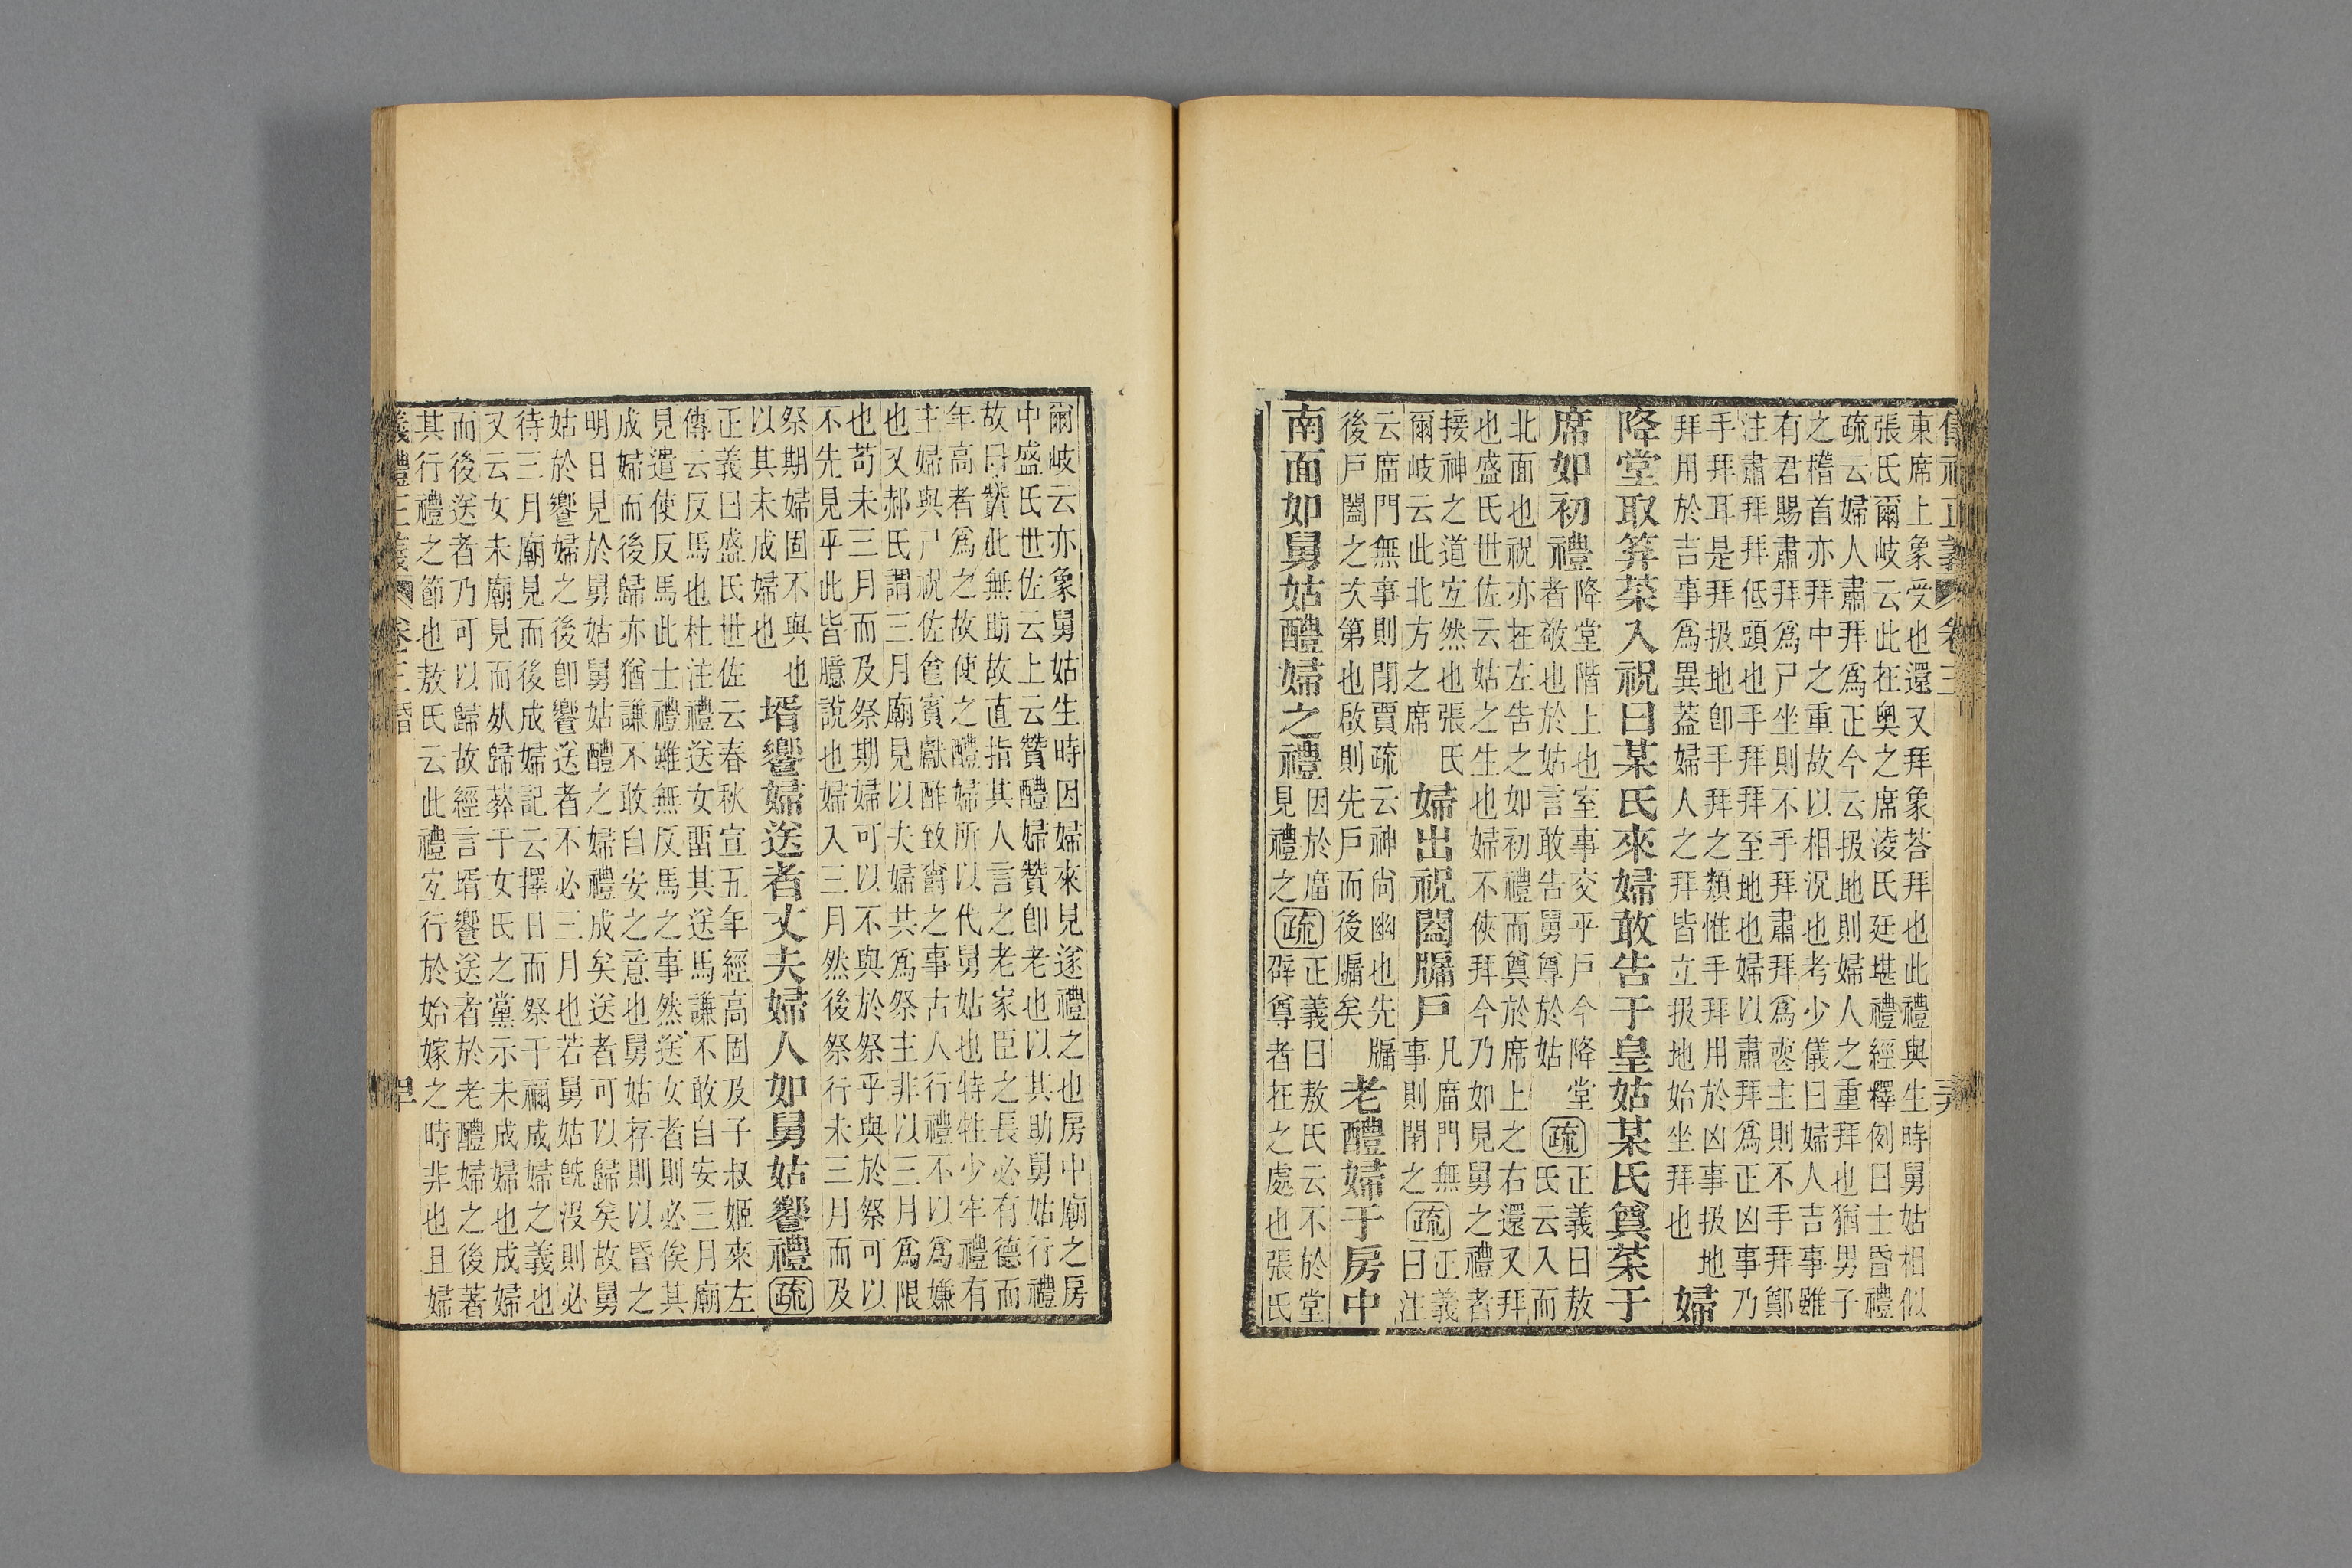 東席上象受也還又拜象荅拜也此禮與生時舅姑相似
張氏爾岐云此在奧之席淩氏廷堪禮經釋例曰士昏禮
疏云婦人肅拜爲正今云扱地則婦人之重拜也猶男子
之稽首亦拜中之重故以相況也考少儀曰婦人吉事雖
有君賜肅拜爲尸坐則不手拜肅拜爲喪主則不手拜鄭
注肅拜拜低頭也手拜拜至地也婦以肅拜爲正凶事乃
手拜耳是拜扱地卽手拜之類惟手拜用於凶事扱地
拜用於吉事爲異葢婦人之拜皆立扱地始坐拜也 婦
降堂取笲菜入祝曰某氏來婦敢告于皇姑某氏奠菜于
席如初禮 降堂階上也室事交乎戶今降堂
者敬也於姑言敢告舅尊於姑 疏 正義曰敖
氏云入而
北面也祝亦在左告之如初禮而奠於席上之右還又拜
也盛氏世佐云姑之生也婦不俠拜今乃如見舅之禮者
接神之道宜然也張氏
爾岐云此北方之席 婦出祝闔牖戶 凡庿門無
事則閉之 疏 正義
曰注
云庿門無事則閉賈疏云神尙幽也先牖
後戶闔之次第也啟則先戶而後牖矣 老醴婦于房中
南面如舅姑醴婦之禮 因於庿
見禮之 疏 正義曰敖氏云不於堂
辟尊者在之處也張氏
爾岐云亦象舅姑生時因婦來見遂禮之也房中廟之房
中盛氏世佐云上云贊醴婦贊卽老也以其助舅姑行禮
故曰贊此無助故直指其人言之老家臣之長必有德而
年高者爲之故使之醴婦所以代舅姑也特牲少牢禮有
主婦與尸祝佐食賓獻酢致爵之事古人行禮不以爲嫌
也又郝氏謂三月廟見以夫婦共爲祭主非以三月爲限
也苟未三月而及祭期婦可以不與於祭乎與於祭可以
不先見乎此皆臆說也婦入三月然後祭行未三月而及
祭期婦固不與也
以其未成婦也 壻饗婦送者丈夫婦人如舅姑饗禮 疏
正義曰盛氏世佐云春秋宣五年經高固及子叔姬來左
傳云反馬也杜注禮送女畱其送馬謙不敢自安三月廟
見遣使反馬此士禮雖無反馬之事然送女者則必俟其
成婦而後歸亦猶謙不敢自安之意也舅姑存則以昏之
明日見於舅姑舅姑醴之婦禮成矣送者可以歸矣故舅
姑於饗婦之後卽饗送者不必三月也若舅姑旣沒則必
待三月廟見而後成婦記云擇日而祭于禰成婦之義也
又云女未廟見而死歸葬于女氏之黨示未成婦也成婦
而後送者乃可以歸故經言壻饗送者於老醴婦之後著
其行禮之節也敖氏云此禮宜行於始嫁之時非也且婦